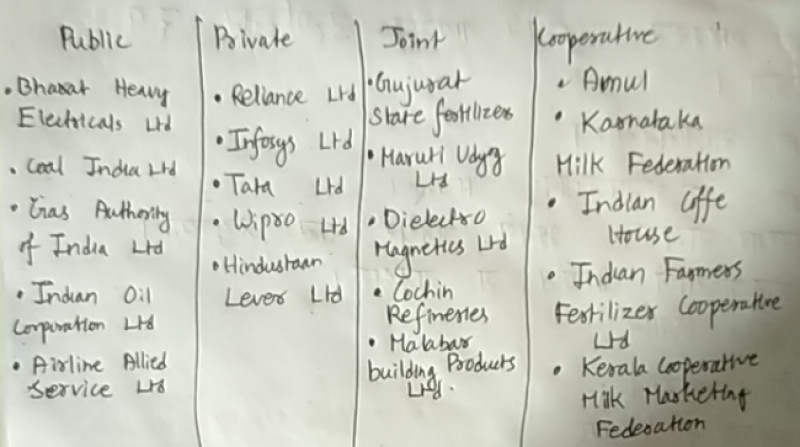 Public
• Bharat Heavy
Electricals Ltd
• Coal India Ltd
• Gas Authority
of India Ltd
• Indian Oil
Corporation Ltd
• Airline Allied
Service Ltd
Private
• Reliance Ltd
• Infosys Ltd
• Tata Ltd
• Wipro Ltd
• Hindustaan
Lever Ltd
Joint
• Gujurat
State fertilizers
• Maruti Udyg
Ltd
• Dielectro
Magnetics Ltd
• Cochin
Refineries
• Malabar
building Products
Ltd.
Cooperative
• Amul
• Karnataka
Milk Federation
• Indian Coffe
House
• Indian Farmers
Fertilizer Cooperative
Ltd
• Kerala Cooperative
Milk Marketing
Federation